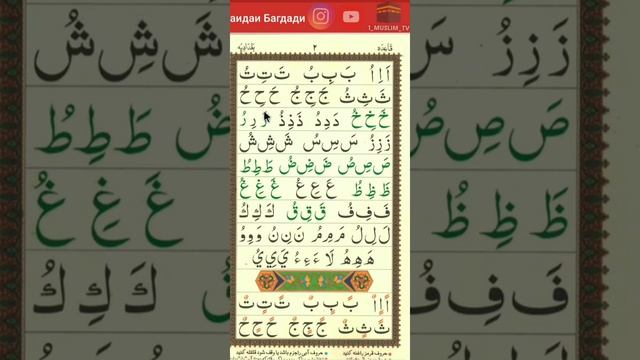 аидаи Багдади
1_MUSLIM_TV
قاعده ٢ بغدادیه
اَ اِ اُ بَ بِ بُ تَ تِ تُ
ثَ ثِ ثُ جَ جِ جُ حَ حِ حُ
خَ خِ خُ دَ دِ دُ ذَ ذِ ذُ رَ رِ رُ
زَ زِ زُ سَ سِ سُ شَ شِ شُ
صَ صِ صُ ضَ ضِ ضُ طَ طِ طُ
ظَ ظِ ظُ عَ عِ عُ غَ غِ غُ
فَ فِ فُ قَ قِ قُ كَ كِ كُ
لَ لِ لُ مَ مِ مُ نَ نِ نُ وَ وِ وُ
هَ هِ هُ لَا ءَ ءِ ءُ يَ يِ يُ
اً اٍ اٌ بً بٍ بٌ تً تٍ تٌ
ثً ثٍ ثٌ جً جٍ جٌ حً حٍ حٌ